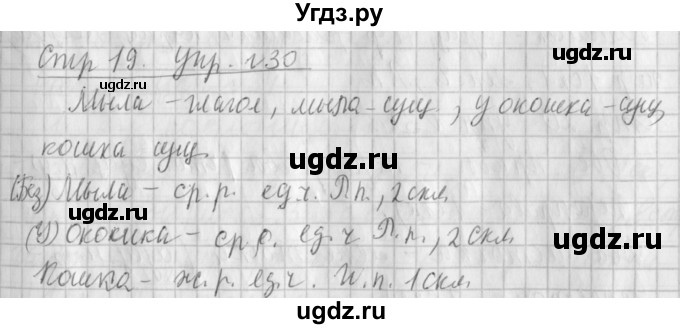 Угдз.ру
Стр 19. Упр. №30
Мыла - глагол, мыла - сущ, у окошка - сущ,
кошка сущ.
(Без) Мыла - ср.р. ед.ч. Р.п., 2 скл.
(У) Окошка - ср.р. ед.ч Р.п., 2 скл.
Кошка - ж.р. ед.ч. И.п. 1 скл.
ugdz.ru
ugdz.ru
ugdz.ru
ugdz.ru
ugdz.ru
ugdz.ru
ugdz.ru
ugdz.ru